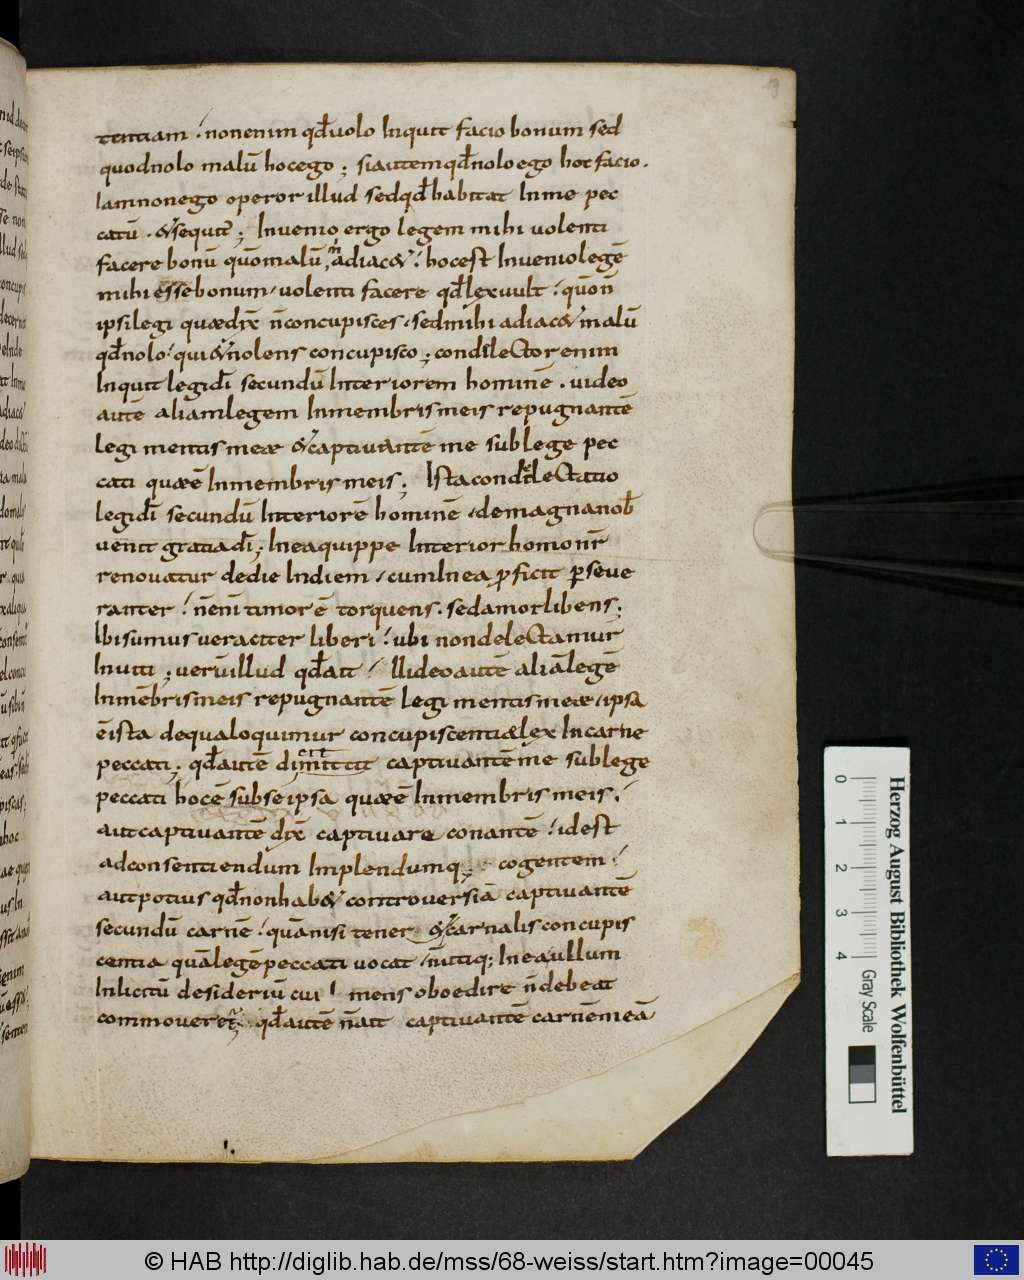 tentiam· non enim qđ uolo Inquit facio bonum sed
quod nolo malū hoc ego; si autem qđ nolo ego hoc facio·
Iam non ego operor illud sed qđ habitat In me pec
catū· & sequit̄; Inuenio ergo legem mihi uolenti
facere bonū quō malū m̄ adiac&· hoc est Inuenio legē
mihi esse bonum uolenti facere qđ lex uult· quōn̄
ipsi legi quæ dix̄ n̄ concupisces· sed mihi adiac& malū
qđ nolo· qui & nolens concupisco; condelector enim
Inquit legi dī secundū Interiorem hominē· uideo
autē aliam legem In membris meis repugnantē
legi mentis meæ & captiuantē me sub lege pec
cati quæ ē In membris meis; Ista condelectatio
legi dī secundū Interiorē hominē· de magna nob̄
uenit gratia dī; In ea quippe Interior homo nr̄
renouatur de die In diem· cum In ea proficit perseue
ranter· n̄ enī timor ē torquens· sed amor libens;
Ibi sumus ueraciter liberi· ubi non delectamur
Inuiti; uerū illud qđ ait· Uideo autē aliā legē
In mēbris meis repugnantē legi mentis meæ· ipsa
ē ista de qua loquimur concupiscentiæ lex In carne
peccati; qđ autē dimittit captiuantē me sub lege
peccati hoc ē sub se ipsa quæ ē In membris meis·
aut captiuantē dix̄ captiuare conantē· id est
ad consentiendum Implendumq; cogentem·
aut potius qđ non hab& controuersiā captiuantē
secundū carnē· quā nisi tener& carnalis concupis
centia quā legē peccati uocat· n̄ utiq; In ea ullum
Inlicitū desideriū cui mens oboedire n̄ debeat
commoueret̄; qđ autē n̄ ait captiuantē carnē meā
0 1 2 3 4
Herzog August Bibliothek Wolfenbüttel
Gray Scale
© HAB http://diglib.hab.de/mss/68-weiss/start.htm?image=00045